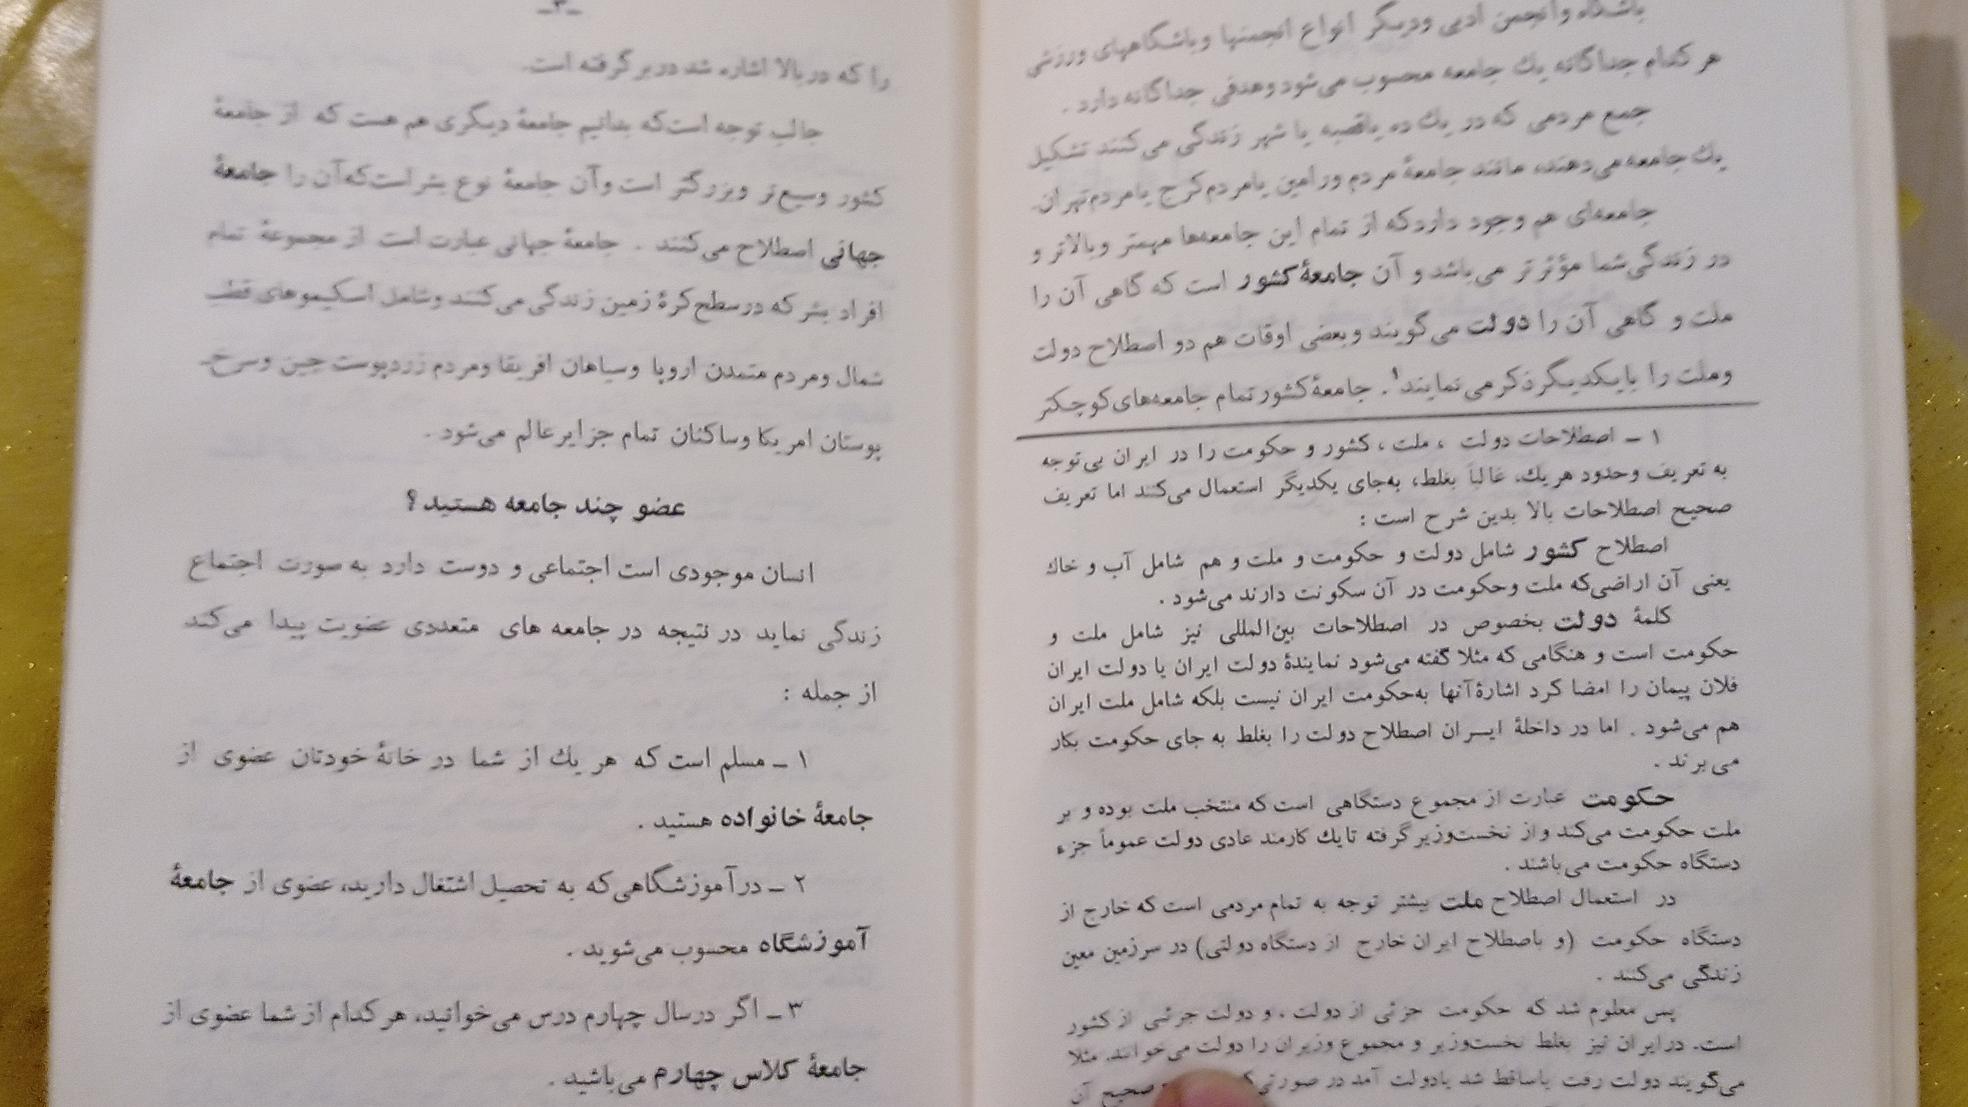 باشگاه و انجمن ادبی و دیگر انواع انجمنها و باشگاههای ورزشی
هر کدام جداگانه یك جامعه محسوب می‌شود و هدفی جداگانه دارد .
جمع مردمی که در یك ده یا قصبه یا شهر زندگی می‌کنند تشکیل
یك جامعه می‌دهند، مانند جامعهٔ مردم ورامین یا مردم کرج یا مردم تهران.
جامعه‌ای هم وجود دارد که از تمام این جامعه‌ها مهمتر و بالاتر و
در زندگی شما مؤثرتر می‌باشد و آن جامعهٔ کشور است که گاهی آن را
ملت و گاهی آن را دولت می‌گویند و بعضی اوقات هم دو اصطلاح دولت
و ملت را با یکدیگر ذکر می‌نمایند۱. جامعهٔ کشور تمام جامعه‌های کوچکتر
۱ ـ اصطلاحات دولت ، ملت ، کشور و حکومت را در ایران بی‌توجه
به تعریف و حدود هر یك، غالباً بغلط، به‌جای یکدیگر استعمال می‌کنند اما تعریف
صحیح اصطلاحات بالا بدین شرح است :
اصطلاح کشور شامل دولت و حکومت و ملت و هم شامل آب و خاك
یعنی آن اراضی که ملت و حکومت در آن سکونت دارند می‌شود .
کلمهٔ دولت بخصوص در اصطلاحات بین‌المللی نیز شامل ملت و
حکومت است و هنگامی که مثلا گفته می‌شود نمایندهٔ دولت ایران یا دولت ایران
فلان پیمان را امضا کرد اشارهٔ آنها به‌حکومت ایران نیست بلکه شامل ملت ایران
هم می‌شود . اما در داخلهٔ ایران اصطلاح دولت را بغلط به جای حکومت بکار
می‌برند .
حکومت عبارت از مجموع دستگاهی است که منتخب ملت بوده و بر
ملت حکومت می‌کند و از نخست‌وزیر گرفته تا یك کارمند عادی دولت عموماً جزء
دستگاه حکومت می‌باشند .
در استعمال اصطلاح ملت بیشتر توجه به تمام مردمی است که خارج از
دستگاه حکومت (و باصطلاح ایران خارج از دستگاه دولتی) در سرزمین معین
زندگی می‌کنند .
پس معلوم شد که حکومت جزئی از دولت ، و دولت جزئی از کشور
است. در ایران نیز بغلط نخست‌وزیر و مجموع وزیران را دولت می‌خوانند. مثلا
می‌گویند دولت رفت یا ساقط شد یا دولت آمد در صورتی صحیح آن
ـ۳ـ
را که در بالا اشاره شد در بر گرفته است.
جالب توجه است که بدانیم جامعهٔ دیگری هم هست که از جامعهٔ
کشور وسیع‌تر و بزرگتر است و آن جامعهٔ نوع بشر است که آن را جامعهٔ
جهانی اصطلاح می‌کنند . جامعهٔ جهانی عبارت است از مجموعهٔ تمام
افراد بشر که در سطح کرهٔ زمین زندگی می‌کنند و شامل اسکیموهای قطب
شمال و مردم متمدن اروپا و سیاهان افریقا و مردم زردپوست چین و سرخ‌ـ
پوستان امریکا و ساکنان تمام جزایر عالم می‌شود .
عضو چند جامعه هستید؟
انسان موجودی است اجتماعی و دوست دارد به صورت اجتماع
زندگی نماید در نتیجه در جامعه های متعددی عضویت پیدا می‌کند
از جمله :
۱ ـ مسلم است که هر یك از شما در خانهٔ خودتان عضوی از
جامعهٔ خانواده هستید .
۲ ـ در آموزشگاهی که به تحصیل اشتغال دارید، عضوی از جامعهٔ
آموزشگاه محسوب می‌شوید .
۳ ـ اگر در سال چهارم درس می‌خوانید، هر کدام از شما عضوی از
جامعهٔ کلاس چهارم می‌باشید .